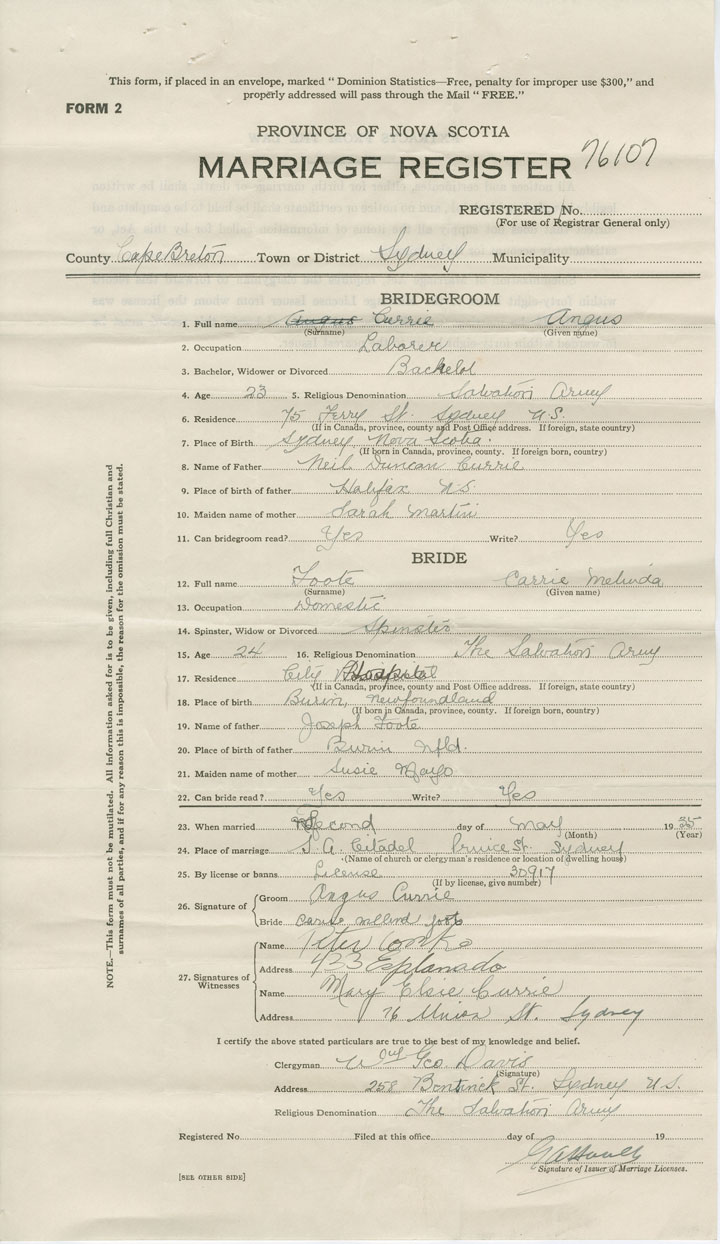 This form, if placed in an envelope, marked " Dominion Statistics—Free, penalty for improper use $300," and
properly addressed will pass through the Mail " FREE."
FORM 2
PROVINCE OF NOVA SCOTIA
MARRIAGE REGISTER 76107
REGISTERED No.
(For use of Registrar General only)
County Cape Breton Town or District Sydney Municipality
BRIDEGROOM
1. Full name Angus Currie Angus
(Surname) (Given name)
2. Occupation Laborer
3. Bachelor, Widower or Divorced Bachelor
4. Age 23 5. Religious Denomination Salvation Army
6. Residence 75 Ferry St. Sydney N.S.
(If in Canada, province, county and Post Office address. If foreign, state country)
7. Place of Birth Sydney Nova Scotia.
(If born in Canada, province, county. If foreign born, country)
8. Name of Father Neil Duncan Currie
9. Place of birth of father Halifax N.S.
10. Maiden name of mother Sarah Martin
11. Can bridegroom read? Yes Write? Yes
BRIDE
12. Full name Foote Carrie Melinda
(Surname) (Given name)
13. Occupation Domestic
14. Spinster, Widow or Divorced Spinster
15. Age 24 16. Religious Denomination The Salvation Army
17. Residence City Hospital
(If in Canada, province, county and Post Office address. If foreign, state country)
18. Place of birth Burin, Newfoundland
(If born in Canada, province, county. If foreign born, country)
19. Name of father Joseph Foote
20. Place of birth of father Burin Nfld.
21. Maiden name of mother Susie Mayo
22. Can bride read? Yes Write? Yes
23. When married Second day of May 1935
(Month) (Year)
24. Place of marriage S.A. Citadel Prince St. Sydney
(Name of church or clergyman's residence or location of dwelling house)
25. By license or banns License 30917
(If by license, give number)
26. Signature of Groom Angus Currie
Bride Carrie foote
27. Signatures of Witnesses
Name Peter
Address 423 Esplanade
Name Mary Elsie Currie
Address 76 Union St. Sydney
I certify the above stated particulars are true to the best of my knowledge and belief.
Clergyman Geo. Davis
(Signature)
Address 258 Bentinck St. Sydney N.S.
Religious Denomination The Salvation Army
Registered No. Filed at this office day of 19
Signature of Issuer of Marriage Licenses.
[SEE OTHER SIDE]
NOTE.—This form must not be mutilated. All information asked for is to be given, including full Christian and
surnames of all parties, and if for any reason this is impossible, the reason for the omission must be stated.